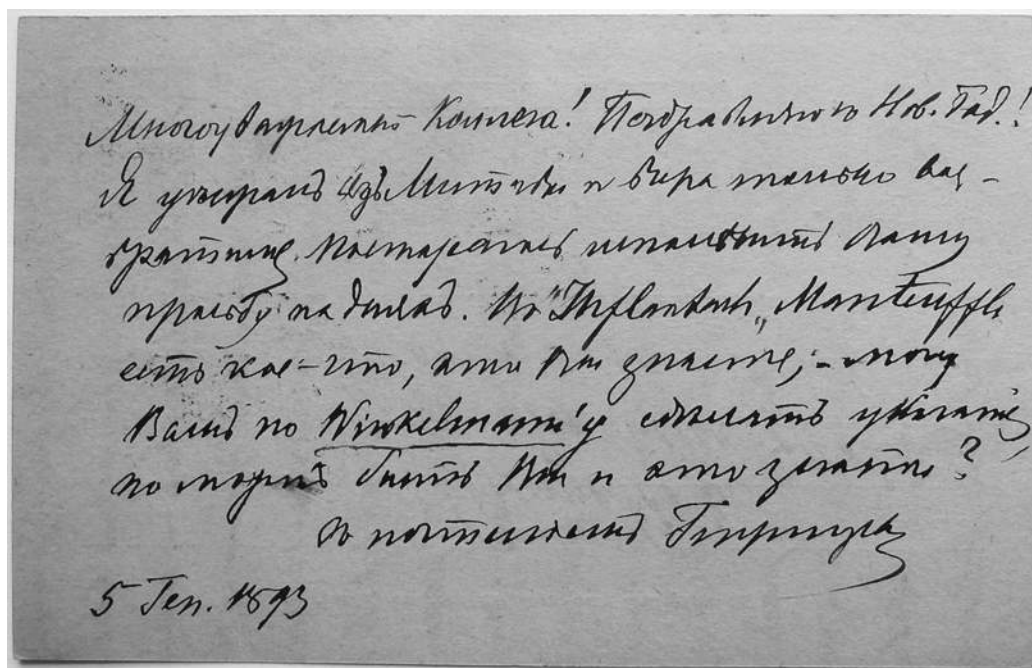 Многоуважаемый Коллега! Поздравляю съ Нов. Год.!
Я уезжалъ изъ Митавы и вчера только воз-
вратился. Постараюсь исполнить Вашу
просьбу на дняхъ. Въ "Inflantach" Manteuffla
есть кое-что, это Вы знаете; - могу
Вамъ по Winkelmann'у сделать указание,
но можетъ быть Вы и это знаете?
Съ почтениемъ
5 Ген. 1893